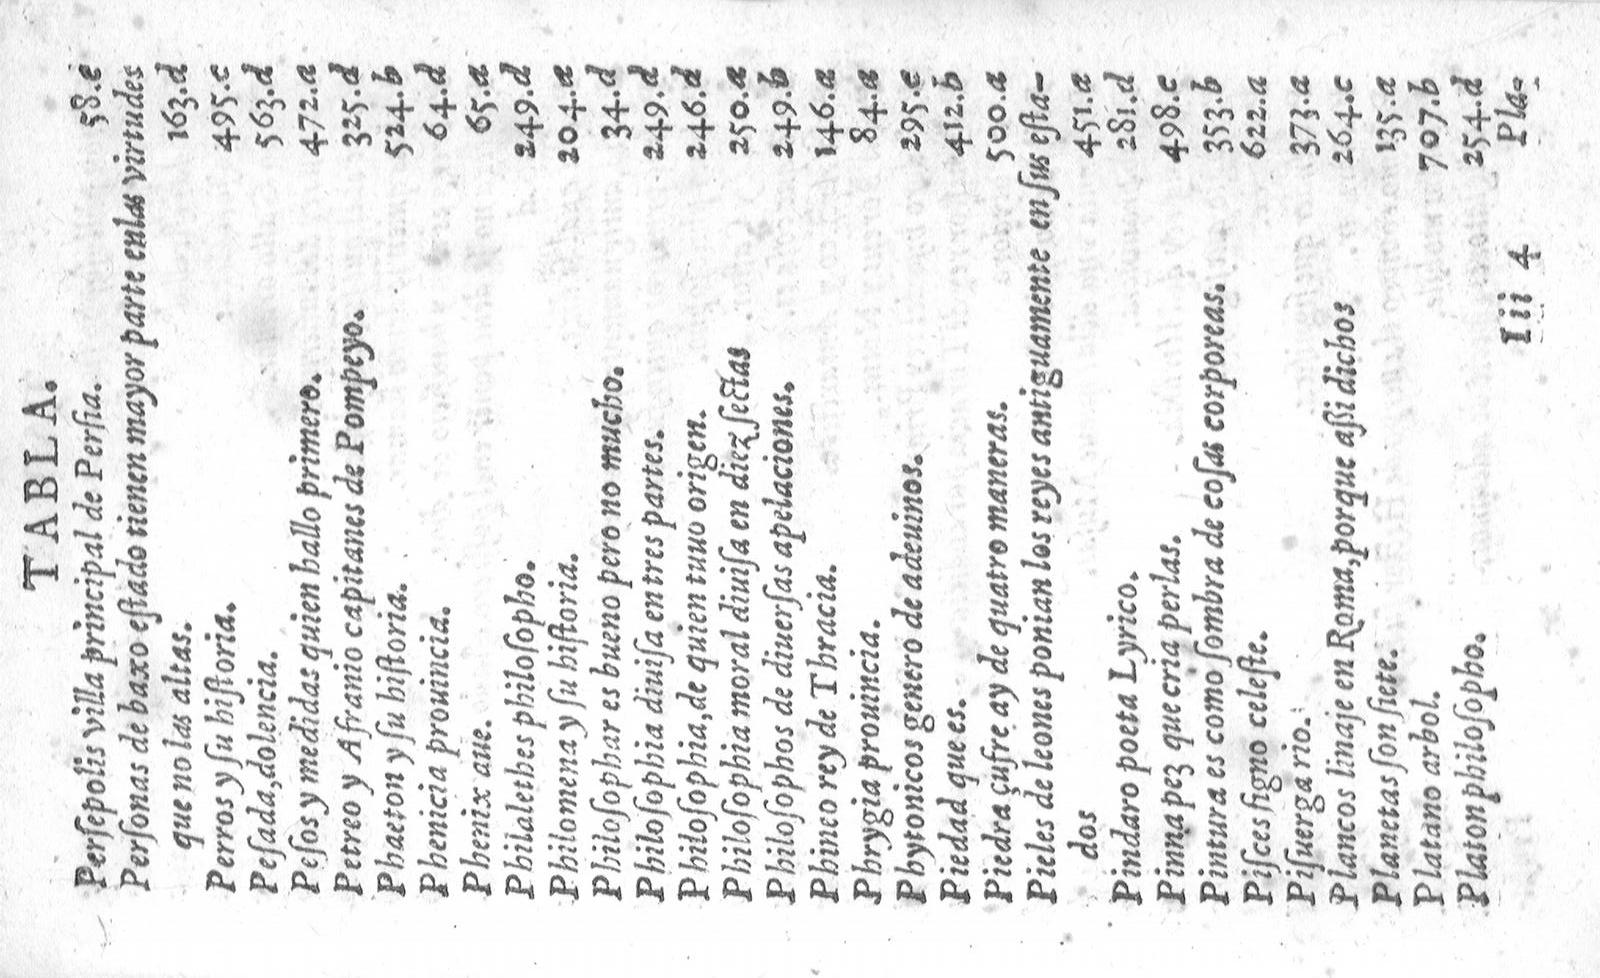 TABLA.
Perſepolis villa principal de Perſia. 58.e
Perſonas de baxo eſtado tienen mayor parte enlas virtudes
que no las altas. 163.d
Perros y ſu hiſtoria. 495.c
Peſada,dolencia. 563.d
Peſos y medidas quien hallo primero. 472.a
Petreo y Afranio capitanes de Pompeyo. 325.d
Phaeton y ſu hiſtoria. 524.b
Phenicia prouincia. 64.d
Phenix aue. 65.a
Philalethes philoſopho. 249.d
Philomena y ſu hiſtoria. 204.a
Philoſophar es bueno pero no mucho. 34.d
Philoſophia diuiſa en tres partes. 249.d
Philoſophia,de quien tuuo origen. 246.d
Philoſophia moral diuiſa en diez ſectas 250.a
Philoſophos de diuerſas apelaciones. 249.b
Phineo rey de Thracia. 146.a
Phrygia prouincia. 84.a
Phytonicos genero de adeuinos. 295.e
Piedad que es. 412.b
Piedra çufre ay de quatro maneras. 500.a
Pieles de leones ponian los reyes antiguamente en ſus eſta-
dos 451.a
Pindaro poeta Lyrico. 281.d
Pinna pez que cria perlas. 498.e
Pintura es como ſombra de coſas corporeas. 353.b
Piſces ſigno celeſte. 622.a
Piſuerga rio. 373.a
Plancos linaje en Roma,porque aſſi dichos 264.c
Planetas ſon ſiete. 135.a
Platano arbol. 707.b
Platon philoſopho. 254.d
Iii 4 Pla-